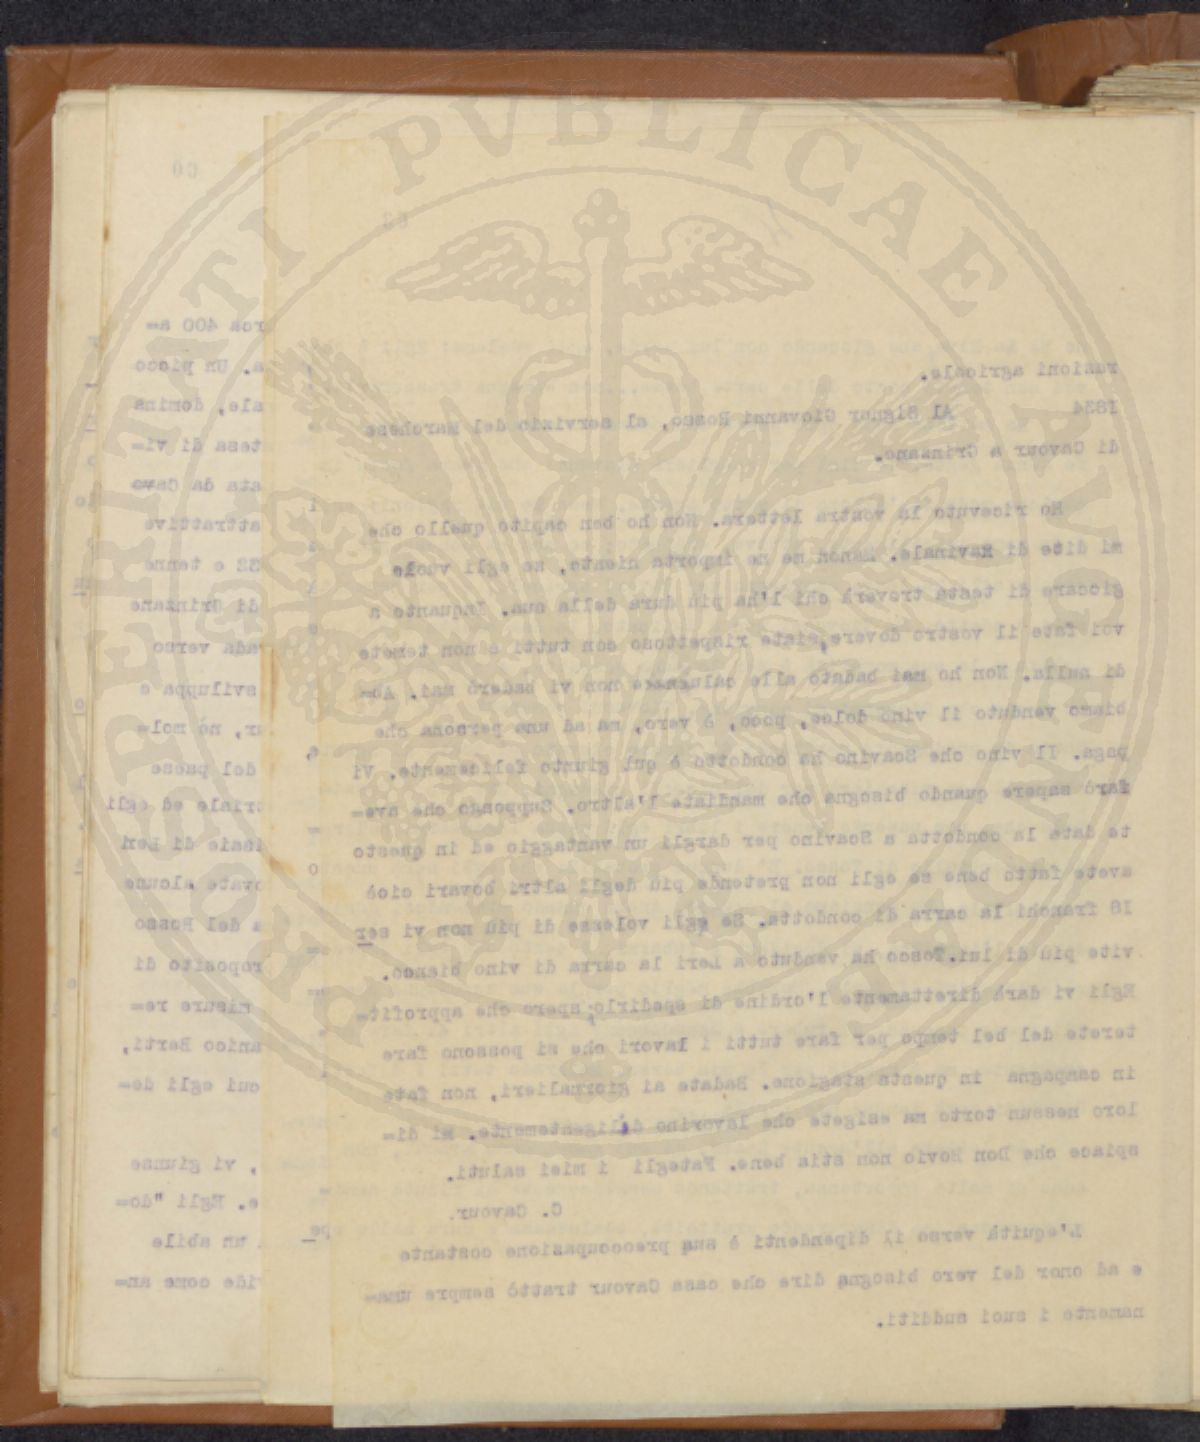 PROSPERITATI PVBLICAE AVGENDAE
63
razioni agricole.
1834 Al Signor Giovanni Rosso, al servizio del Marchese
di Cavour a Grinzane.
Ho ricevuto la vostra lettera. Non ho ben capito quello che
mi dite di Ravinale. Manon me ne importa niente, se egli vuole
giocare di testa troverà chi l'ha più dura della sua. Inquanto a
voi fate il vostro dovere, siate rispettoso con tutti e non temete
di nulla. Non ho mai badato alle calunnie e non vi baderò mai. Ab=
biamo venduto il vino dolce, poco, è vero, ma ad una persona che
paga. Il vino che Scavino ha condotto è qui giunto felicemente. Vi
farò sapere quando bisogna che mandiate l'altro. Suppongo che ave=
te data la condotta a Scavino per dargli un vantaggio ed in questo
avete fatto bene se egli non pretende più degli altri bovari cioè
18 franchi la carra di condotta. Se egli volesse di più non vi ser
vite più di lui. Tosco ha venduto a Leri la carra di vino bianco.
Egli vi darà direttamente l'ordine di spedirlo, spero che approfit=
terete del bel tempo per fare tutti i lavori che si possono fare
in campagna in questa stagione. Badate ai giornalieri, non fate
loro nessun torto ma esigete che lavorino diligentemente. Mi di=
spiace che Don Rovio non stia bene. Fategli i miei saluti.
C. Cavour.
L'equità verso il dipendenti è sua preoccupazione costante
e ad onor del vero bisogna dire che casa Cavour trattò sempre uma=
namente i suoi sudditi.
60
rca 400 a=
a. Un picco
ale, domina
tesa di vi=
ata da Cavo
attrattive
32 e tenne
di Grinzane
ada verso
sviluppa e
ur, nò mol=
del paese
oriale ed egli
di Leri
ovate alcune
a del Rosso
roposito di
misure re=
anico Berti,
cui egli de=
, vi giunse
e. Egli "do=
un abile
vide come an=
pe